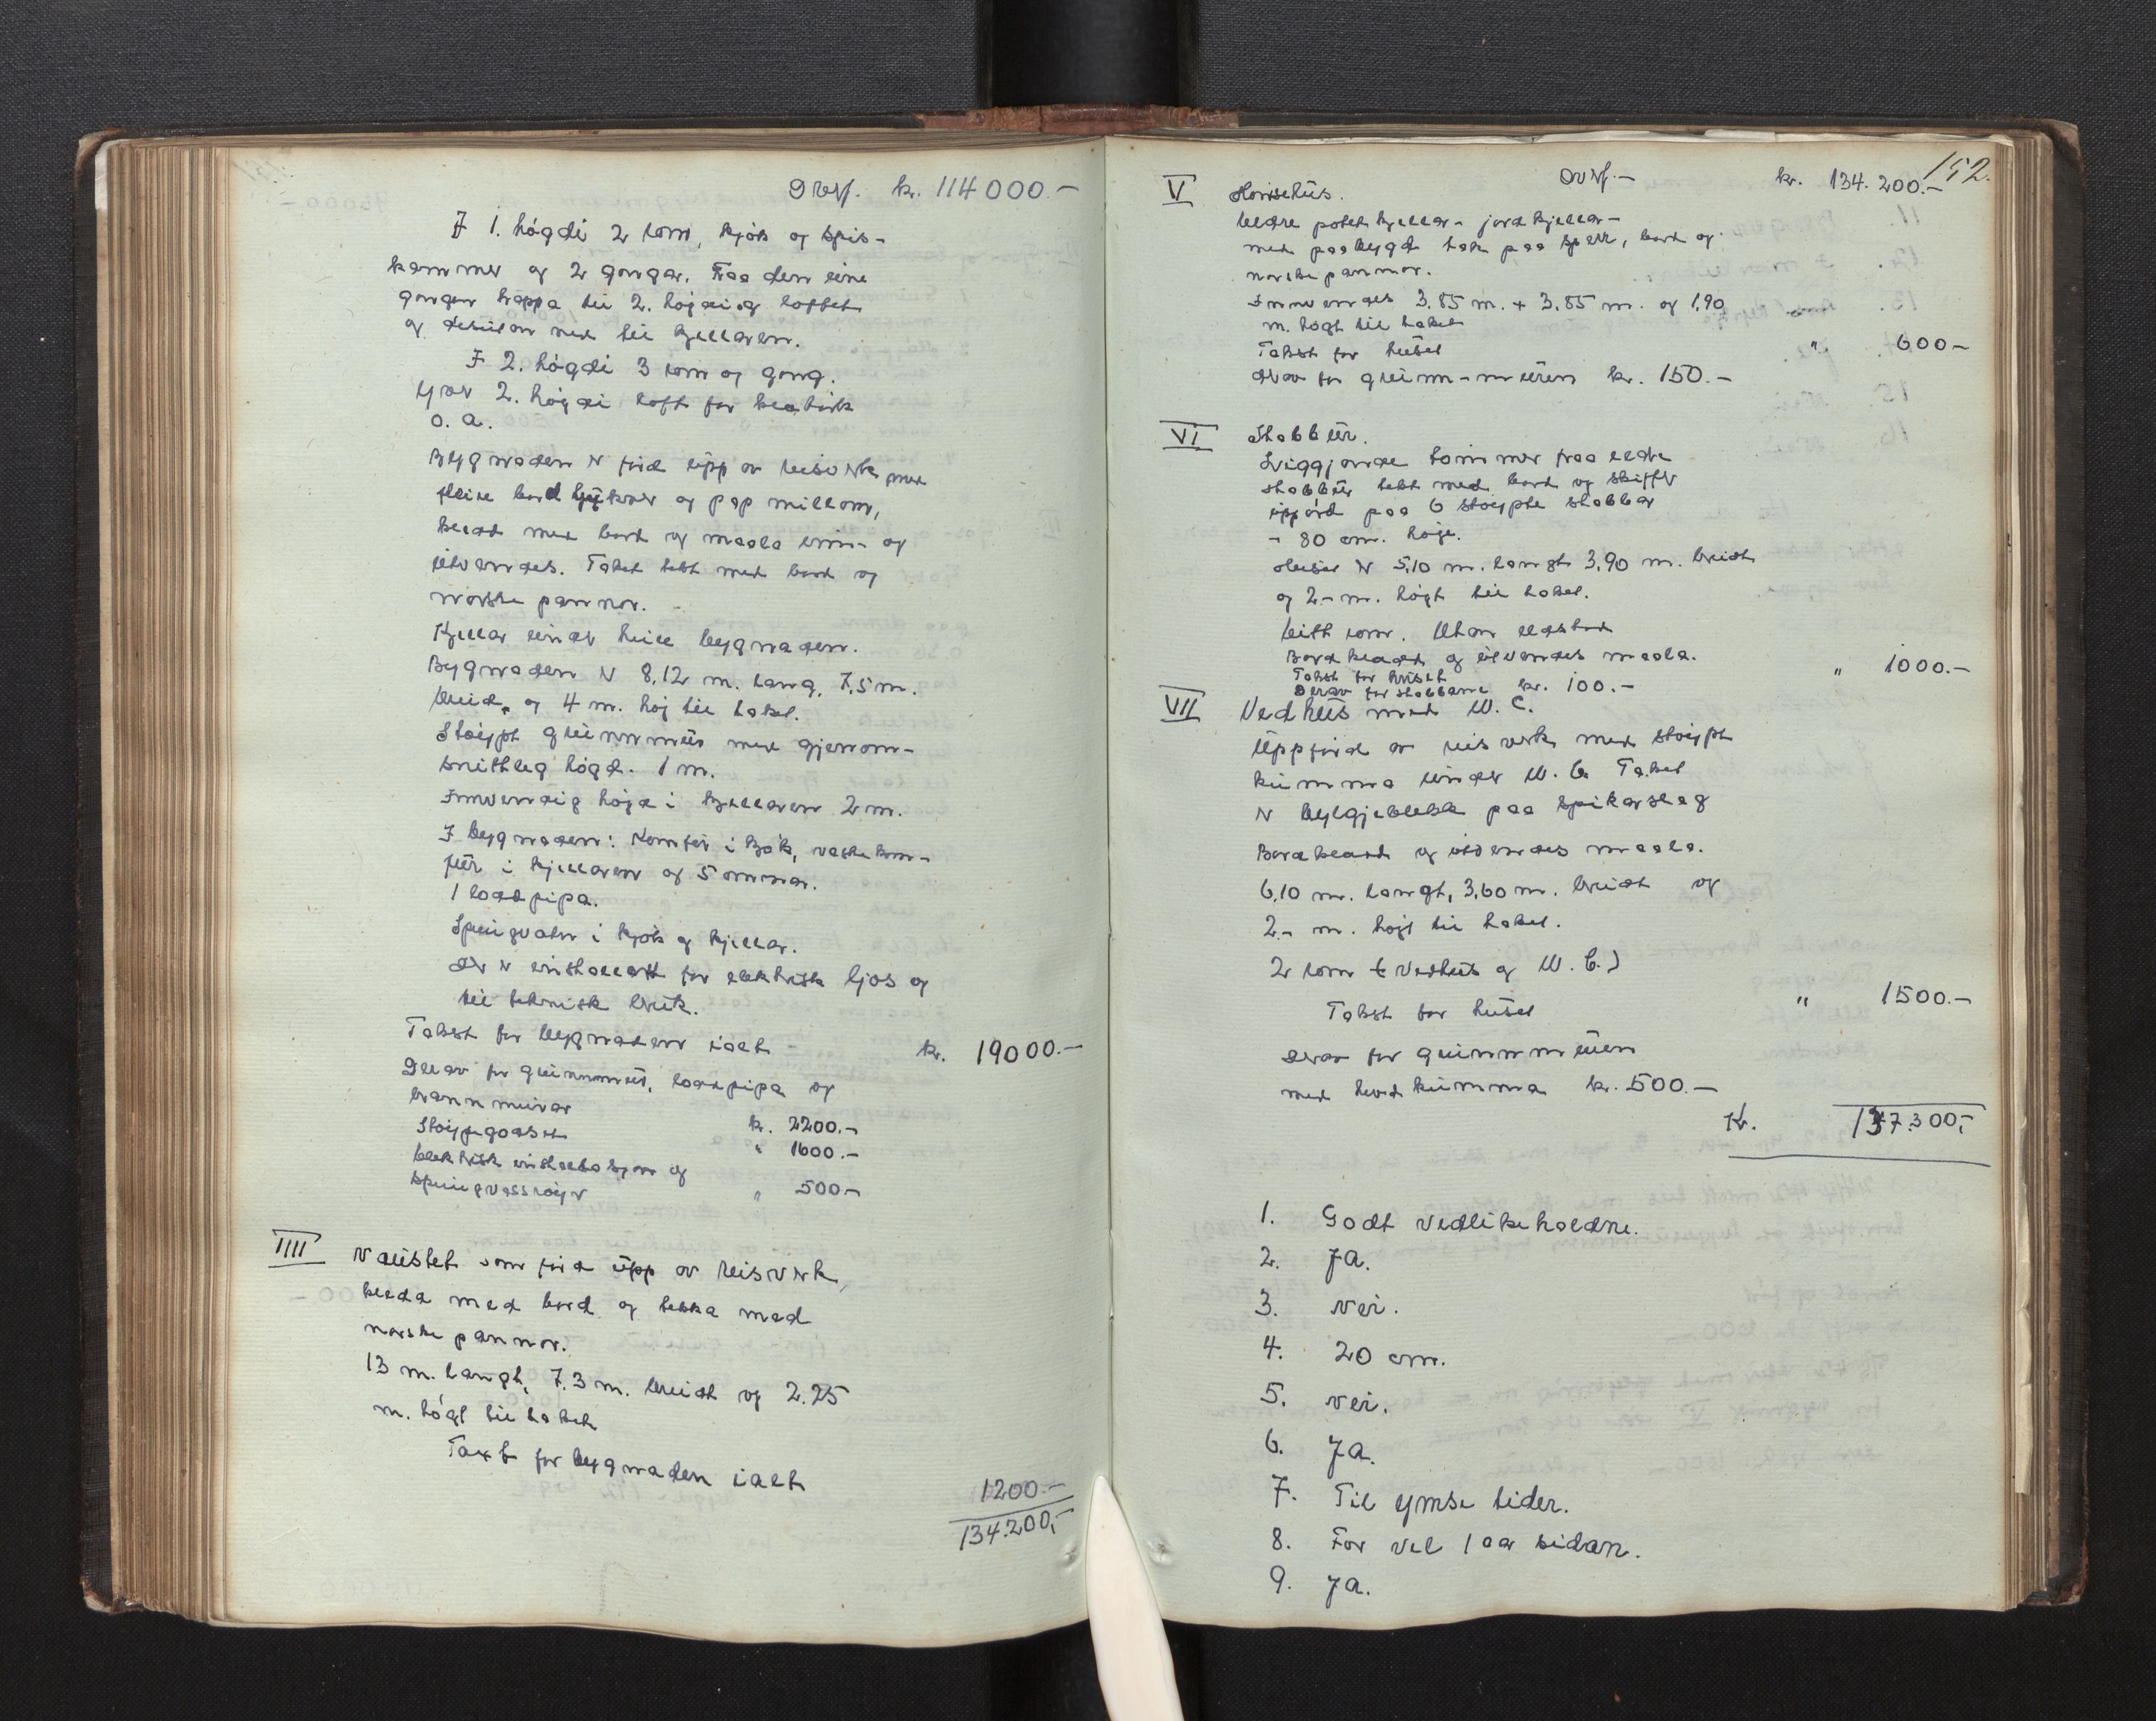 Overf. kr. 114000.-
I 1. högdi 2 rom, kjök og spis-
kammer og 2 gongar. Fraa den eine
gongen trappa til 2. högdi og loftet
og desutan ned til kjellaren.
I 2. högdi 3 rom og gong.
Yver 2. högdi loft for
o. a.
Bygnaden er förd upp av reisverk med
fleire bord tjukner og pap millom,
klædd med bord og maala inn- og
utvendes. Taket tekt med bord og
norske pannor.
Kjellar under heile bygnaden.
Bygnaden er 8,12 m. lang, 7,5 m.
breid, og 4 m. höj til taket.
Stöypt grunnmur med gjenom-
snittleg högd. 1 m.
Innvendig höjd i kjellaren 2 m.
I bygnaden: Komfür i kjök, vaskekom-
für i kjellaren og 5 omnar.
1 loddpipa.
Springvatn i kjök og kjellar.
Der er installert for elektrisk ljos og
til teknisk bruk.
Takst for bygnaden ialt - kr. 19000.-
Derav for grunnmur, loddpipa og
brannmurar kr. 2200.-
Stöypegodset " 1600.-
Elektrisk installasjon og
springvassröyr " 500.-
IIII Naustet som förd upp av reisverk,
klædd med bord og tekka med
norske pannor.
13 m. langt, 7.3 m. breidt og 2.25
m. högt til taket
Taxt for bygnaden ialt
1200.-
134.200,-
152.
Overf.- kr. 134.200.-
V Hönsehus.
Eldre potetkjellar - jordkjellar -
med paabygd tak paa sperr, bord og
norske pannor.
Innvendes 3.85 m. + 3.85 m. og 1,90
m. högt til taket
Takst for huset " 600-
Derav for grunn-muren kr. 150.-
VI Stabbur.
Liggjande tommer fraa eldre
stabbur tekt med bord og skiffer
uppförd paa 6 stöypte stabbar
- 80 cm. höge.
Huset er 5,10 m. langt 3,90 m. breidt
og 2- m. högt til taket.
Eitt rom. Utan eldstad
Bordklædd og utvendes maala.
Takst for huset " 1000.-
Derav for stabbane kr. 100.-
VII Vedhus med W. C.
Uppförd av reisverk med stöypt
kumma under W. C. Taket
er bylgjeblekk paa spikarslag
Bordklædd og utvendes maala.
6,10 m. langt, 3,60 m. breidt og
2.- m. högt til taket.
2 rom (Vedhus og W. C.)
Takst for huset " 1500.-
Derav for grunnmuren
med kumma kr. 500.-
Kr. 137.300,-
1. Godt vedlikeholdne.
2. Ja.
3. Nei.
4. 20 cm.
5. Nei.
6. Ja.
7. Til ymse tider.
8. For vel 1 aar sidan.
9. Ja.